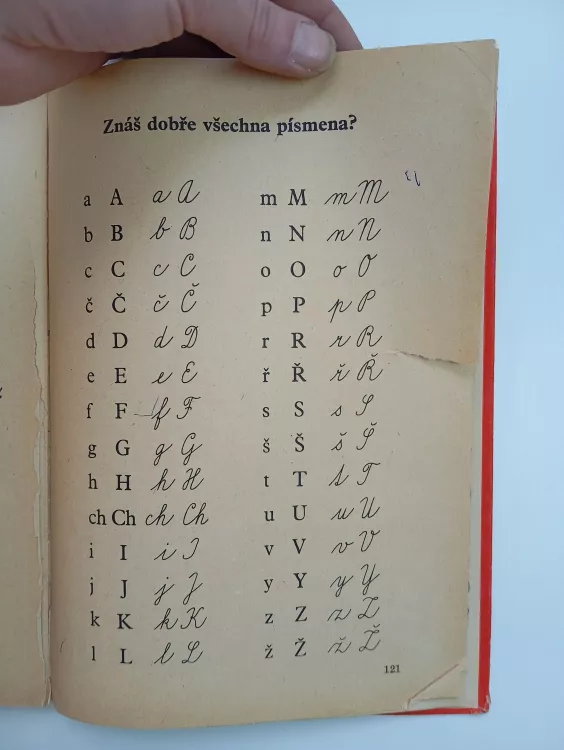 Znáš dobře všechna písmena?
a A a A m M m M
b B b B n N n N
c C c C o O o O
č Č č Č p P p P
d D d D r R r R
e E e E ř Ř ř Ř
f F f F s S s S
g G g G š Š š Š
h H h H t T t T
ch Ch ch Ch u U u U
i I i I v V v V
j J j J y Y y Y
k K k K z Z z Z
l L l L ž Ž ž Ž
121